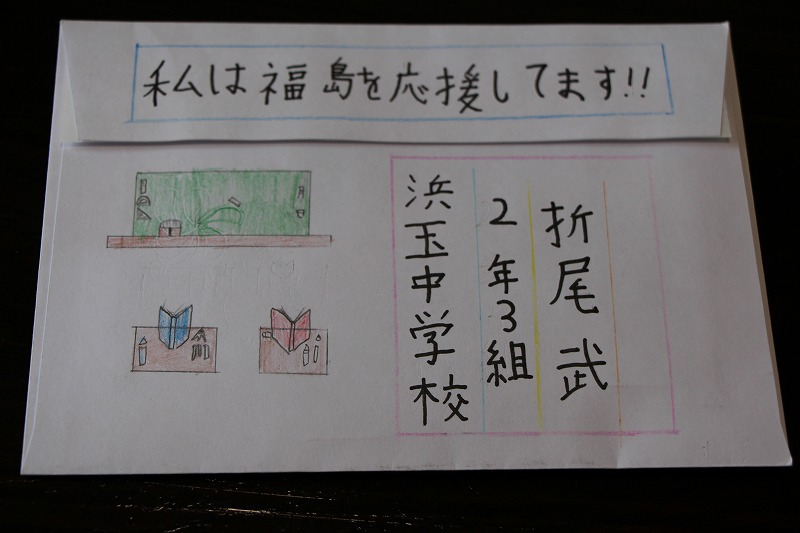 私は福島を応援してます!!
浜玉中学校
2年3組
折尾武
月
日